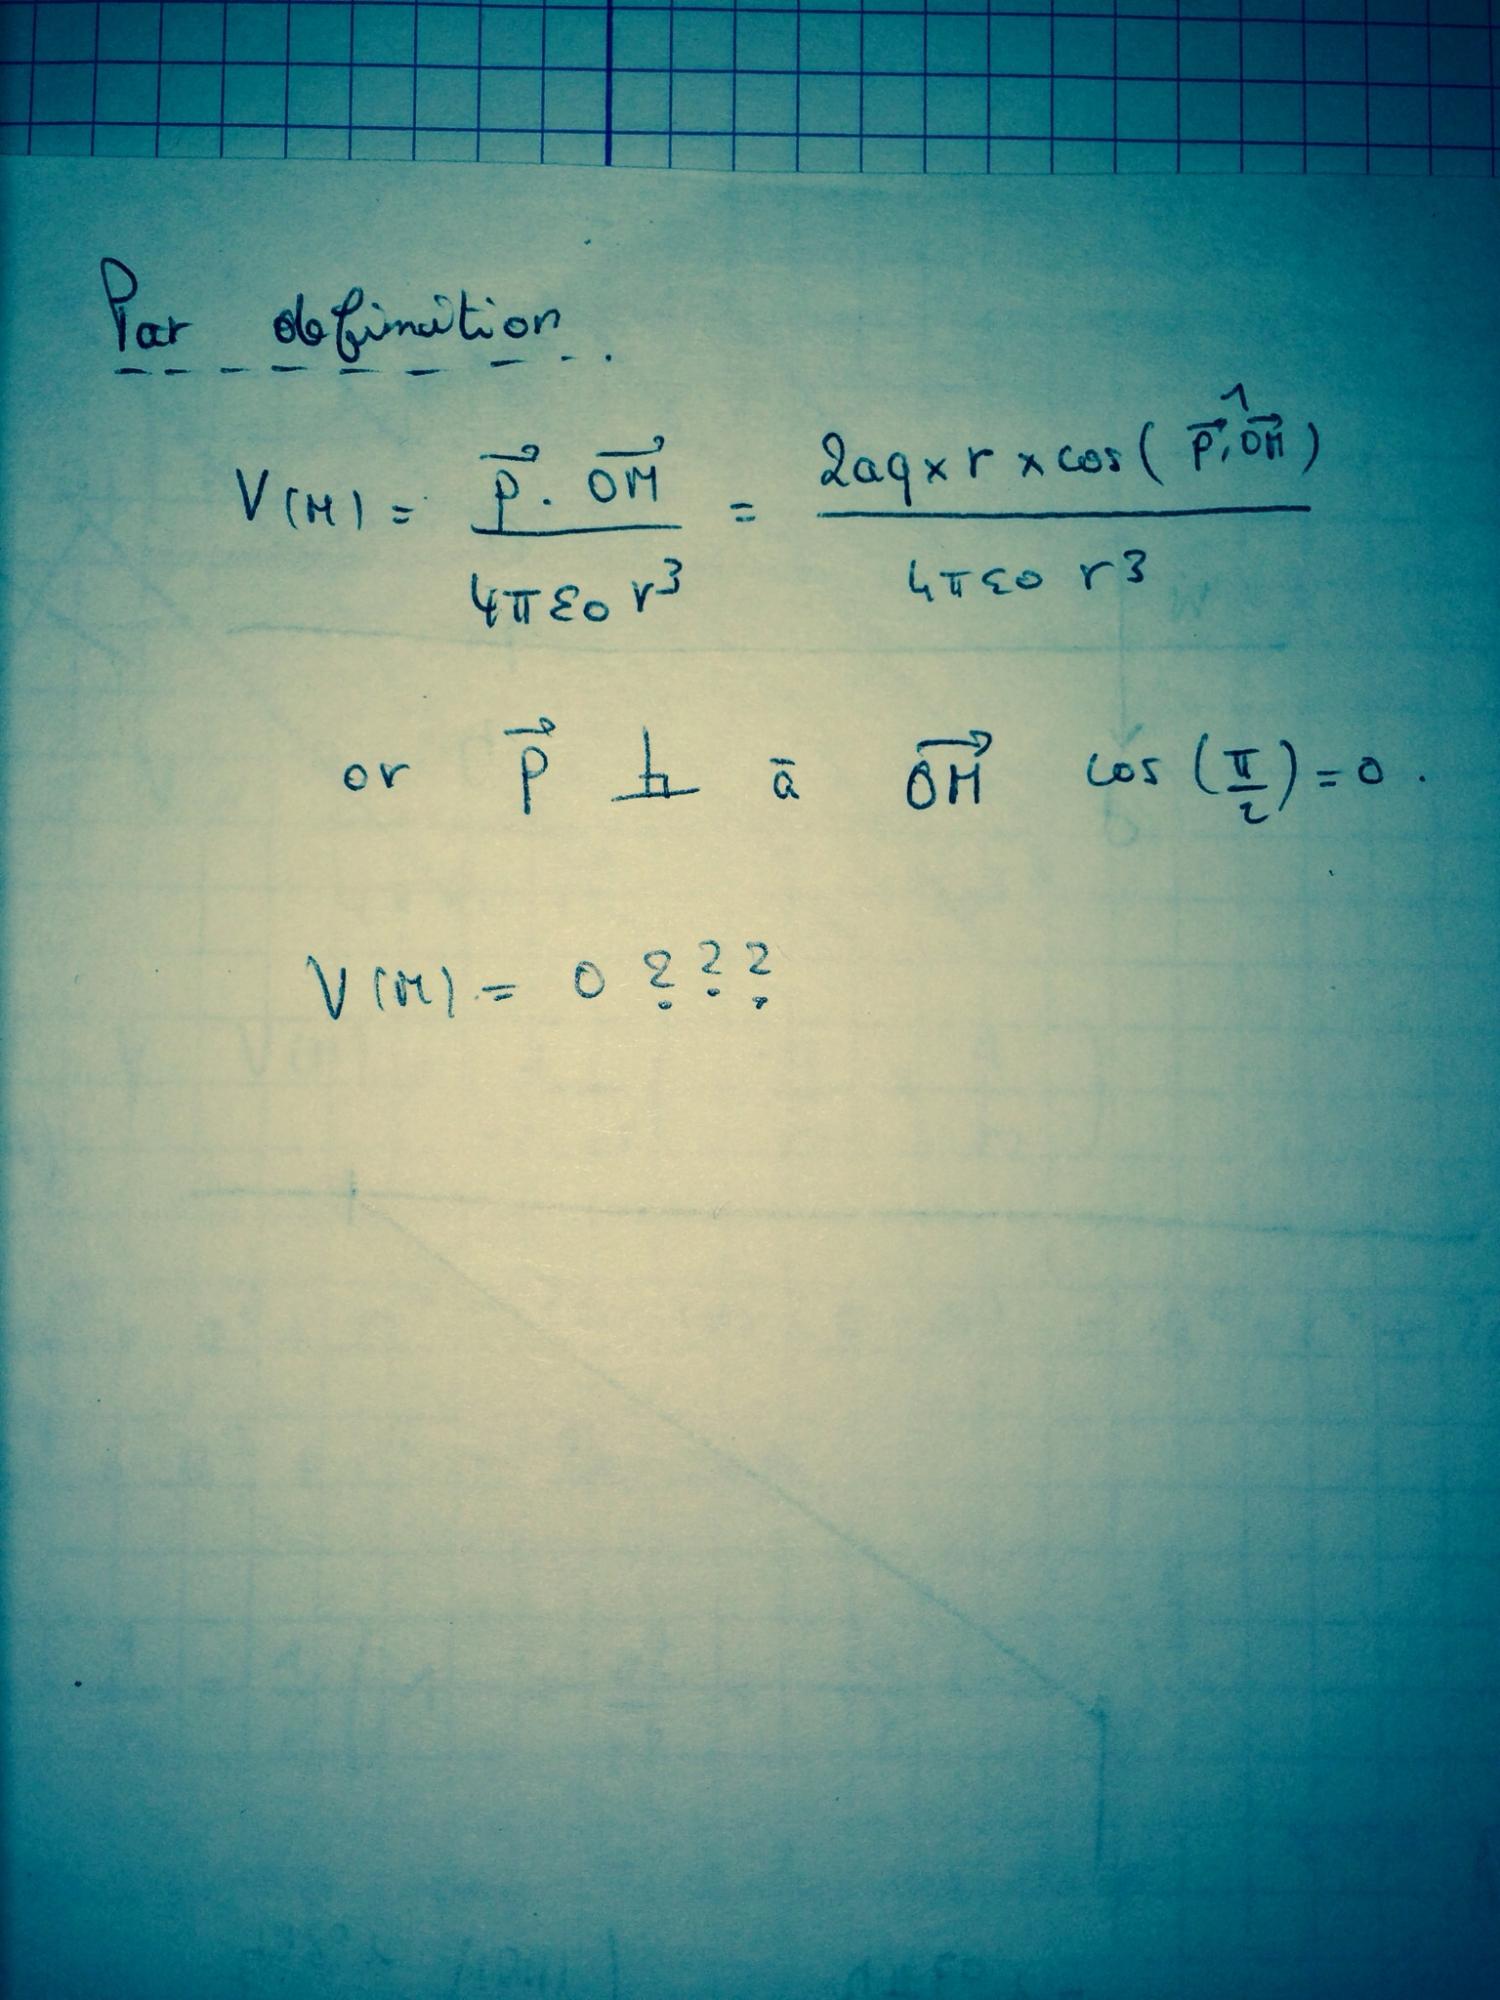 Par definition
V(M) = \frac{\vec{p} . \vec{OM}}{4πε0 r^3} = \frac{2aq x r x cos(\widehat{\vec{p}, \vec{OM}})}{4πε0 r^3}
or \vec{p} ⊥ à \vec{OM} cos(\frac{π}{2}) = 0 .
V(M) = 0 ???